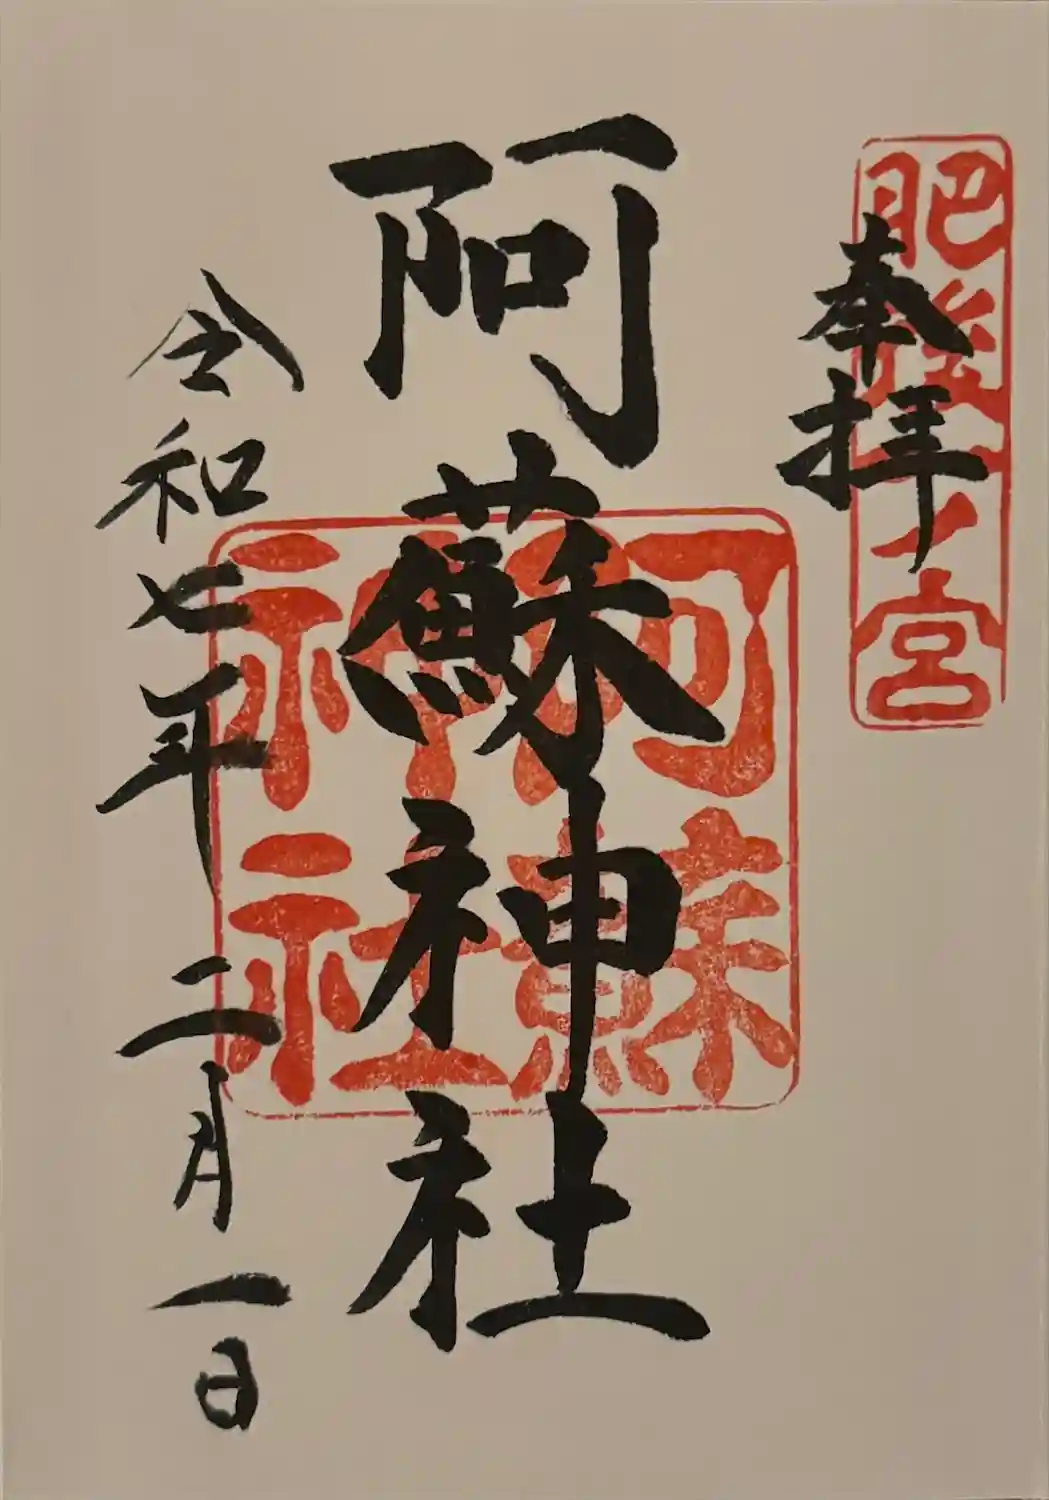 奉拝
肥後一ノ宮
阿蘇神社
阿蘇神社
令和七年二月一日